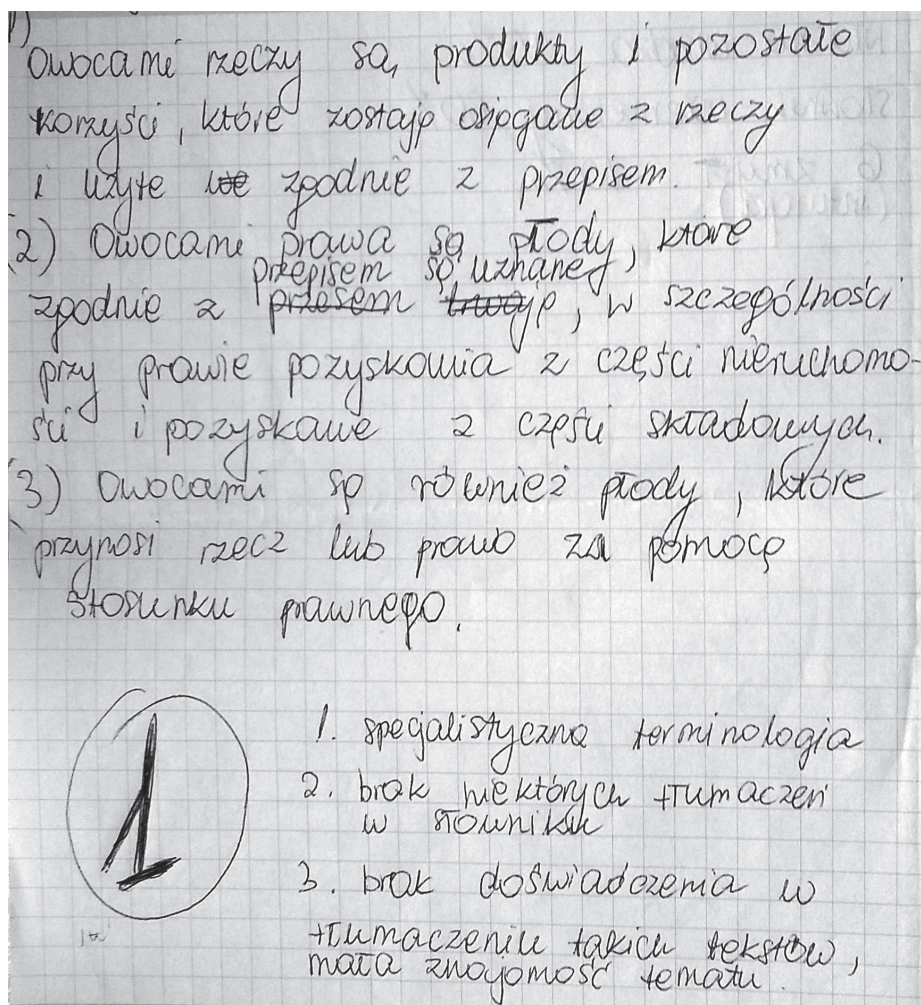 1)
Owocami rzeczy są produkty i pozostałe
korzyści, które zostają osiągane z rzeczy
i użyte zgodnie z przepisem.
(2) Owocami prawa są płody, które
przepisem są uznane,
zgodnie z przesem trwają, w szczególności
przy prawie pozyskania z części nieruchomo-
ści i pozyskane z części składowych.
(3) Owocami są również płody, które
przynosi rzecz lub prawo za pomocą
stosunku prawnego.
1
1. specjalistyczna terminologia
2. brak niektórych tłumaczeń
w słowniku
3. brak doświadczenia w
tłumaczeniu takich tekstów,
mała znajomość tematu.